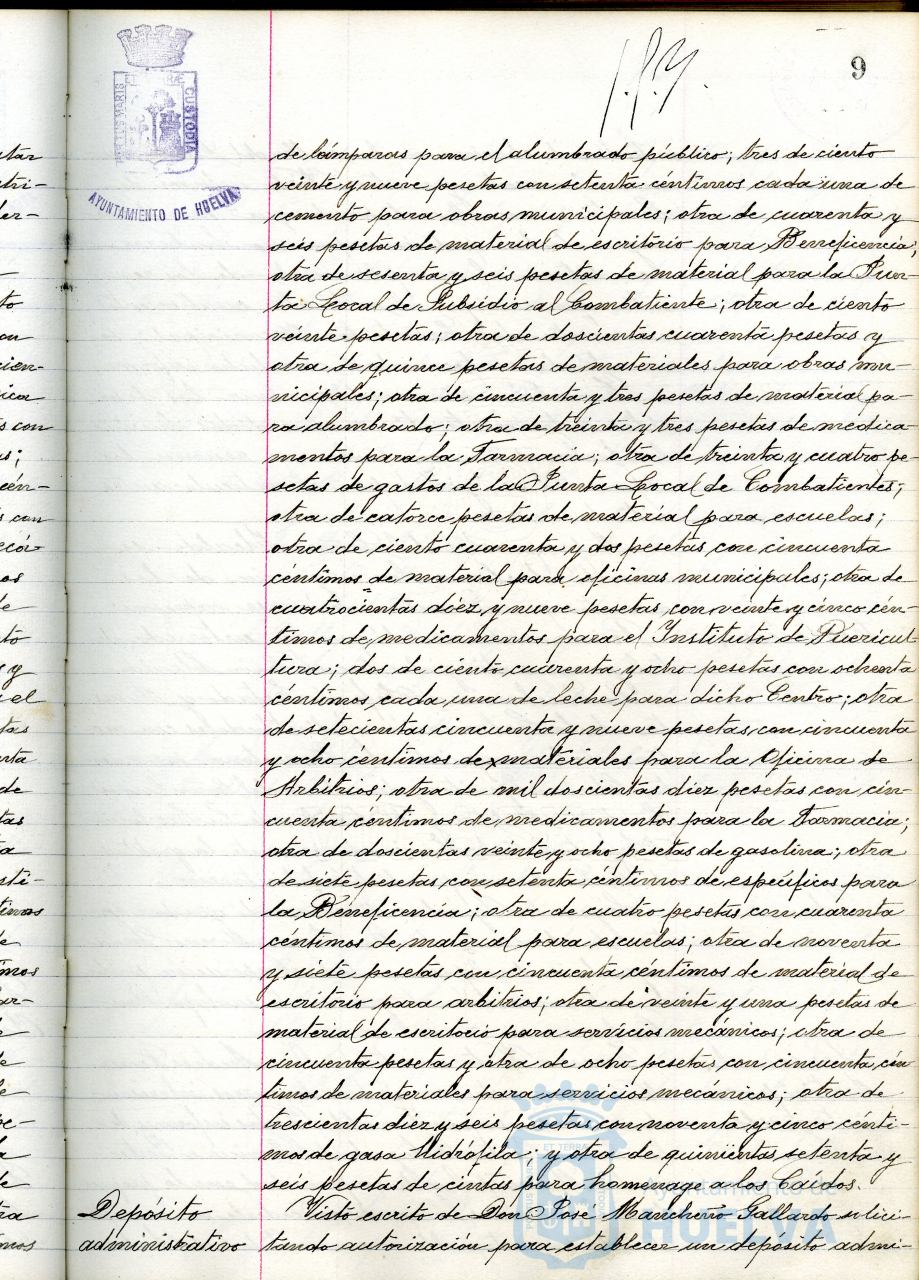 9
PORTUS MARIS ET TERRÆ CUSTODIA
AYUNTAMIENTO DE HUELVA
de lámparas para el alumbrado público; tres de ciento
veinte y nueve pesetas con setenta céntimos cada una de
cemento para obras municipales; otra de cuarenta y
seis pesetas de material de escritorio para Beneficencia;
otra de sesenta y seis pesetas de material para la Jun-
ta Local de Subsidio al Combatiente; otra de ciento
veinte pesetas; otra de doscientas cuarenta pesetas y
otra de quince pesetas de materiales para obras mu-
nicipales; otra de cincuenta y tres pesetas de material pa-
ra alumbrado; otra de treinta y tres pesetas de medica-
mentos para la Farmacia; otra de treinta y cuatro pe-
setas de gastos de la Junta Local de Combatientes;
otra de catorce pesetas de material para escuelas;
otra de ciento cuarenta y dos pesetas con cincuenta
céntimos de material para oficinas municipales; otra de
cuatrocientas diez y nueve pesetas con veinte y cinco cén-
timos de medicamentos para el Instituto de Puericul-
tura; dos de ciento cuarenta y ocho pesetas con ochenta
céntimos cada una de leche para dicho Centro; otra
de setecientas cincuenta y nueve pesetas con cincuenta
y ocho céntimos de materiales para la Oficina de
Arbitrios; otra de mil doscientas diez pesetas con cin-
cuenta céntimos de medicamentos para la Farmacia;
otra de doscientas veinte y ocho pesetas de gasolina; otra
de siete pesetas con setenta céntimos de específicos para
la Beneficencia; otra de cuatro pesetas con cuarenta
céntimos de material para escuelas; otra de noventa
y siete pesetas con cincuenta céntimos de material de
escritorio para arbitrios; otra de veinte y una pesetas de
material de escritorio para servicios mecánicos; otra de
cincuenta pesetas y otra de ocho pesetas con cincuenta cén
timos de materiales para servicios mecánicos; otra de
trescientas diez y seis pesetas con noventa y cinco cénti-
mos de gasa hidrófila; y otra de quinientas setenta y
seis pesetas de cintas para homenage a los Caídos.
Depósito
administrativo
Visto escrito de Don José Mancheño Gallardo solici-
tando autorización para establecer un depósito admi-
Ayuntamiento de
HUELVA